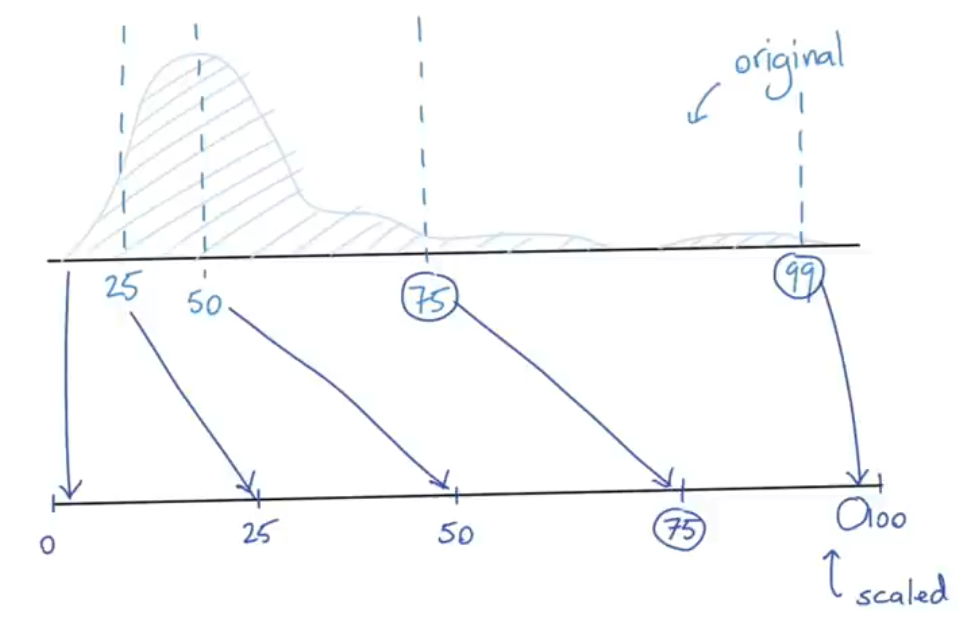 original
25
50
75
99
0
25
50
75
100
scaled